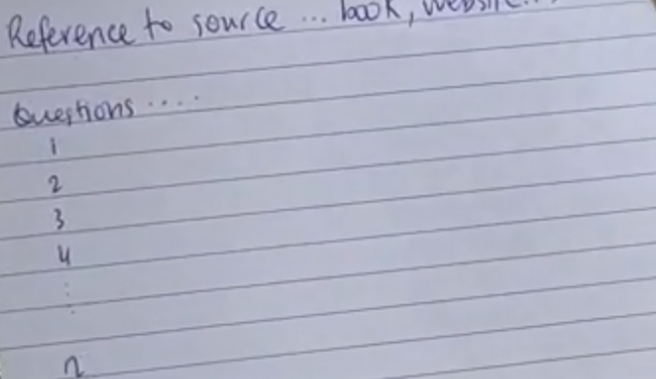 Reference to source ... book, website...
Questions ....
1
2
3
4
:
:
n